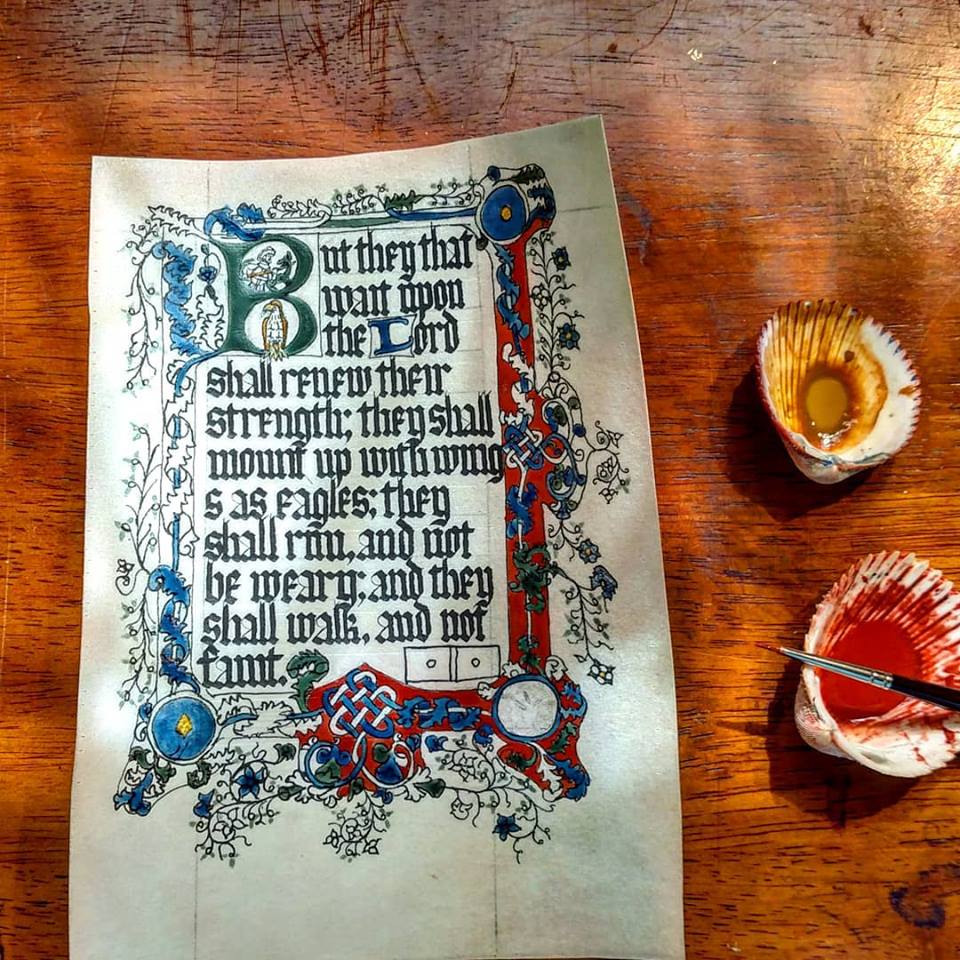 But they that
wait upon
the Lord
shall renew their
strength; they shall
mount up with wing
s as eagles; they
shall run, and not
be weary; and they
shall walk, and not
faint.